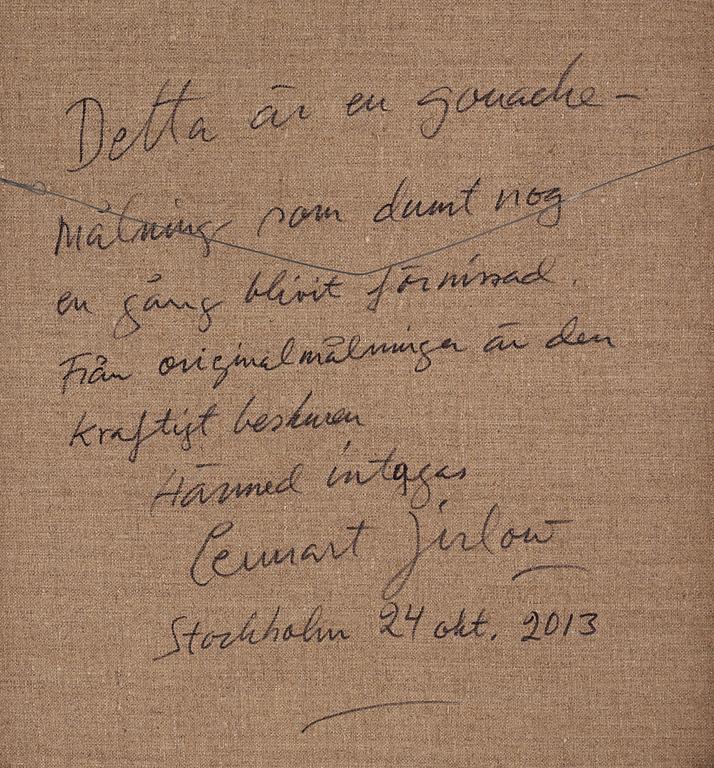 Detta är en gouache-
målning som dumt nog
en gång blivit förnissad.
Från originalmålningen är den
kraftigt beskuren
Härmed intygas
Lennart Jirlow
Stockholm 24 okt. 2013